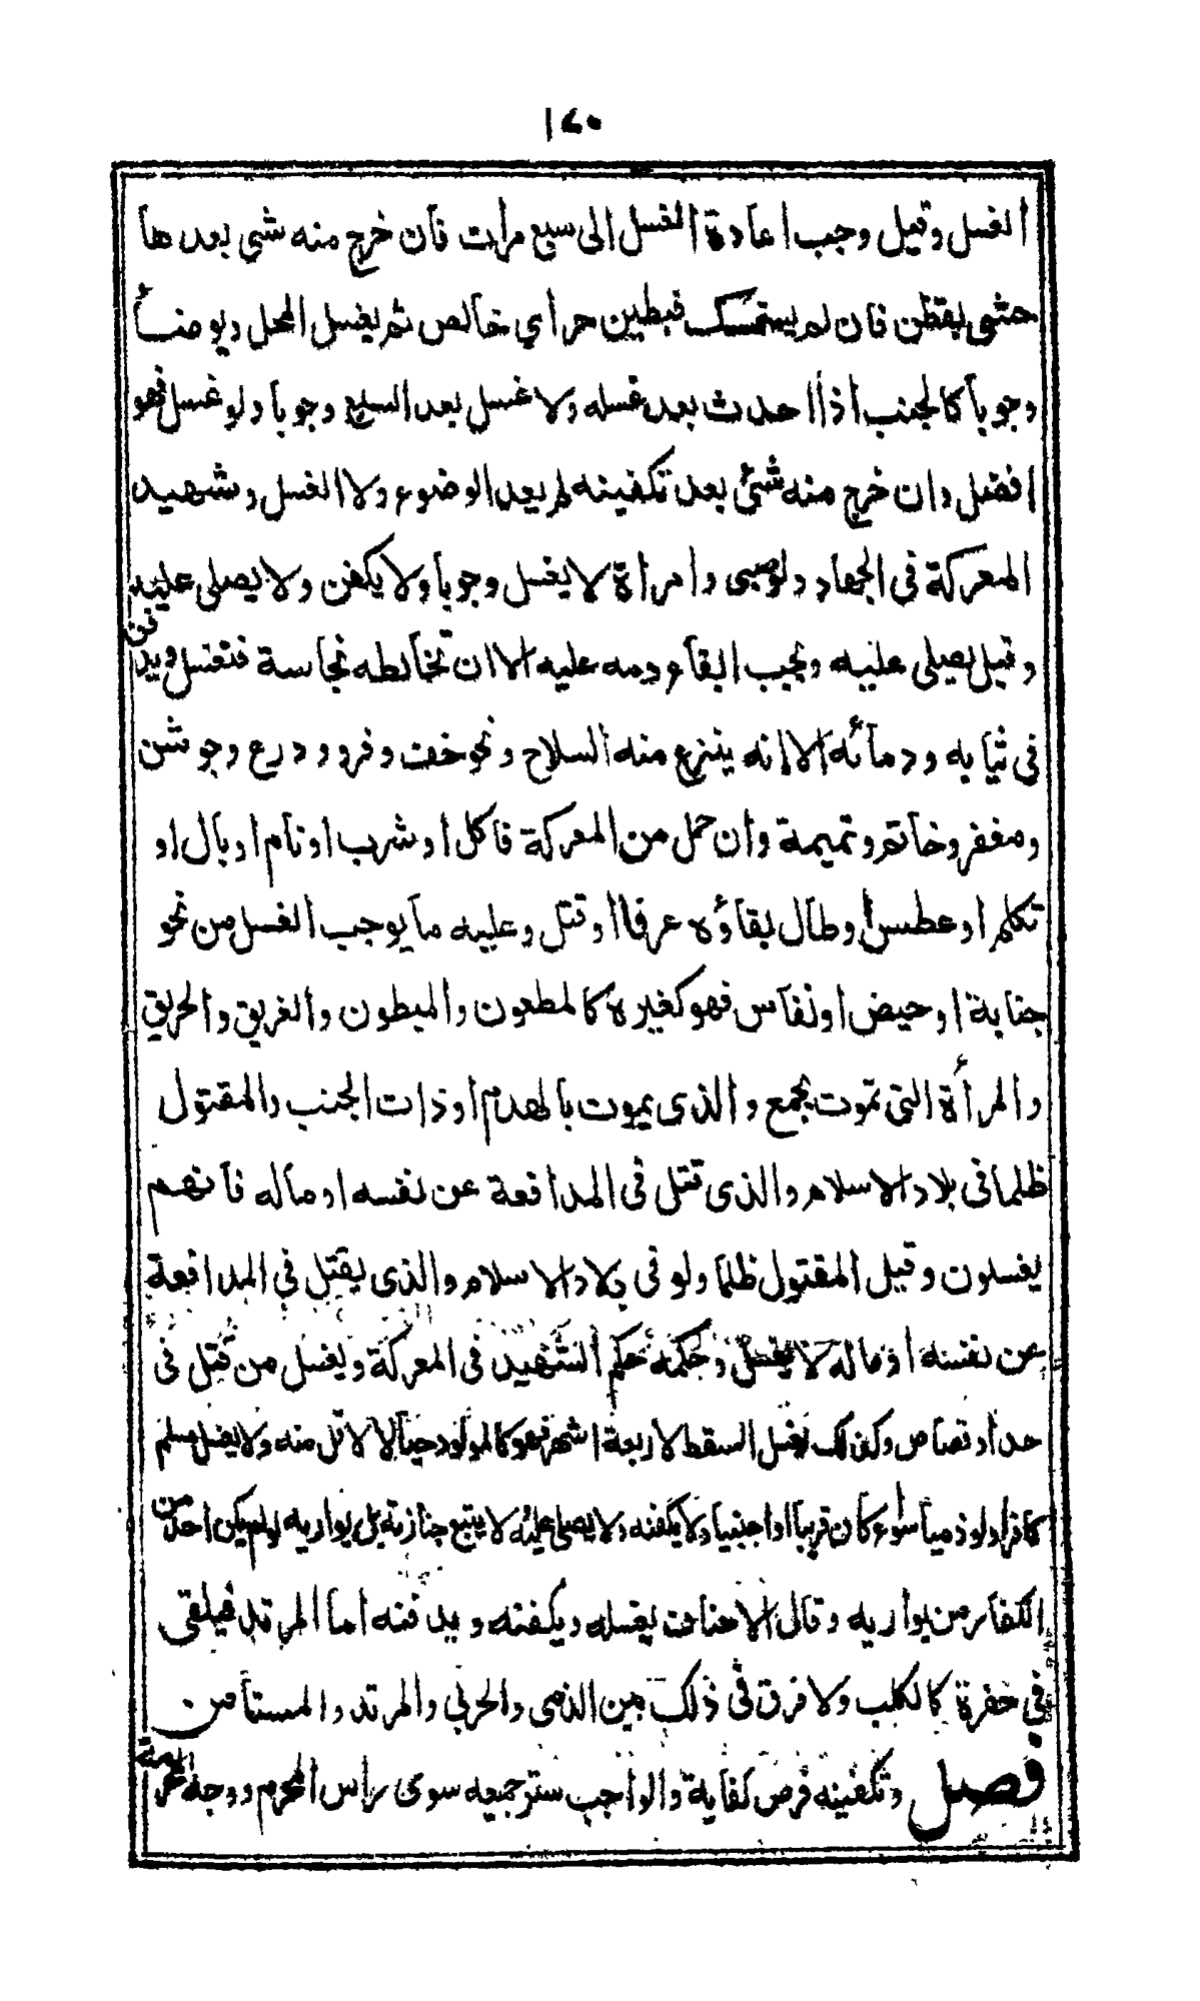 ١٤٠
الغسل وقيل وجب اعادة الغسل الى سبع مرات فان خرج منه شي بعدها
حشى بقطن فان لم يستمسك فبطين حر اي خالص ثم يغسل المحل ويوضأ
وجوبا كالجنب اذا احدث بعد غسله ولا غسل بعد السبع وجوبا ولو غسل فهو
افضل وان خرج منه شئ بعد تكفينه لم يعد الوضوء ولا الغسل وشهيد
المعركة فى الجهاد ولو صبى وامرأة لا يغسل وجوبا ولا يكفن ولا يصلى عليه
وقيل يصلى عليه ويجب ابقاء دمه عليه الا ان تخالطه نجاسة فتغسل ويدفن
فى ثيابه ودمائه الا انه ينزع منه السلاح ونحو خف وفرو ودرع وجوشن
ومغفر وخاتم وتميمة وان حمل من المعركة فاكل او شرب او نام او بال او
تكلم او عطس او طال بقاؤه عرفا او قتل وعليه ما يوجب الغسل من نحو
جنابة او حيض او نفاس فهو كغيره كالمطعون والمبطون والغريق والحريق
والمرأة التى تموت بجمع والذى يموت بالهدم او ذات الجنب والمقتول
ظلما فى بلاد الاسلام والذى قتل فى المدافعة عن نفسه او ماله فانهم
يغسلون وقيل المقتول ظلما ولو فى بلاد الاسلام والذى يقتل فى المدافعة
عن نفسه او ماله لا يغسل وحكمه حكم الشهيد فى المعركة ويغسل من قتل فى
حد او قصاص وكذلك يغسل السقط لاربعة اشهر فهو كالمولود حيا لا لاقل منه ولا يغسل مسلم
كافرا ولو ذميا سواء كان قريبا او اجنبيا ولا يكفنه ولا يصلى عليه لا يتبع جنازته بل يواريه لو لم يكن احد من
الكفار من يواريه وقال الاحناف يغسله ويكفنه ويدفنه اما المرتد فيلقى
فى حفرة كالكلب ولا فرق فى ذلك بين الذمى والحربى والمرتد والمستامن
فصل وتكفينه فرض كفاية والواجب ستر جميعه سوى راس المحرم ووجه المحرمة